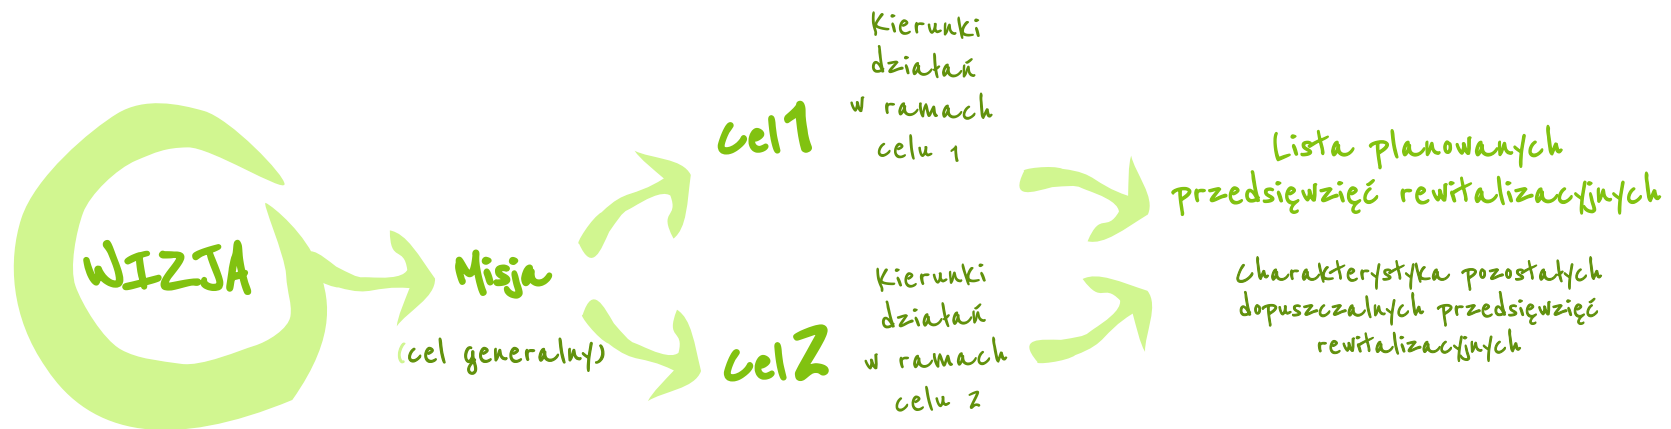 WIZJA
Misja
(cel generalny)
cel 1
Kierunki
działań
w ramach
celu 1
cel 2
Kierunki
działań
w ramach
celu 2
Lista planowanych
przedsięwzięć rewitalizacyjnych
Charakterystyka pozostałych
dopuszczalnych przedsięwzięć
rewitalizacyjnych